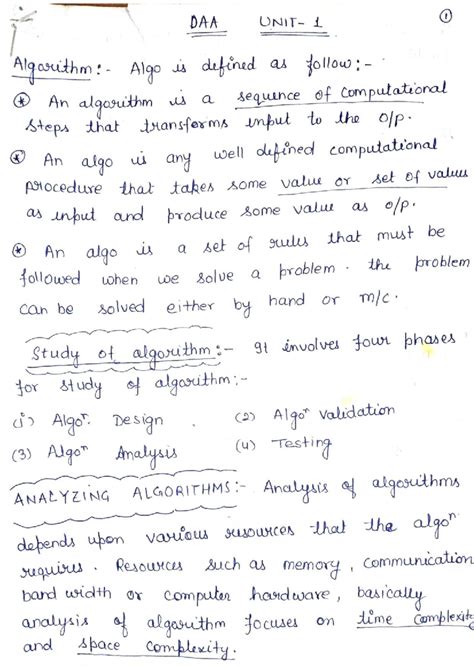 DAA UNIT-1 ①
Algorithm:- Algo is defined as follow:-
⊛ An algorithm is a sequence of computational
steps that transforms input to the o/p.
⊛ An algo is any well defined computational
procedure that takes some value or set of values
as input and produce some value as o/p.
⊛ An algo is a set of rules that must be
followed when we solve a problem. the problem
can be solved either by hand or m/c.
Study of algorithm:- It involves four phases
for study of algorithm:-
(i) Algoⁿ. Design. (2) Algoⁿ Validation
(3) Algoⁿ Analysis (4) Testing
ANALYZING ALGORITHMS:- Analysis of algorithms
depends upon various resources that the algoⁿ
requires. Resources such as memory, communication
band width or computer hardware, basically
analysis of algorithm focuses on time complexity
and space complexity.